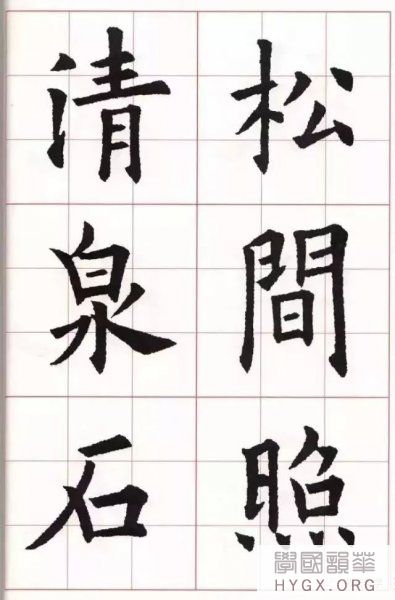 松間照
清泉石
華韻國學
HYGX.ORG